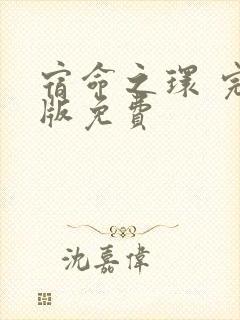 宿命之環
版免費
沈嘉偉